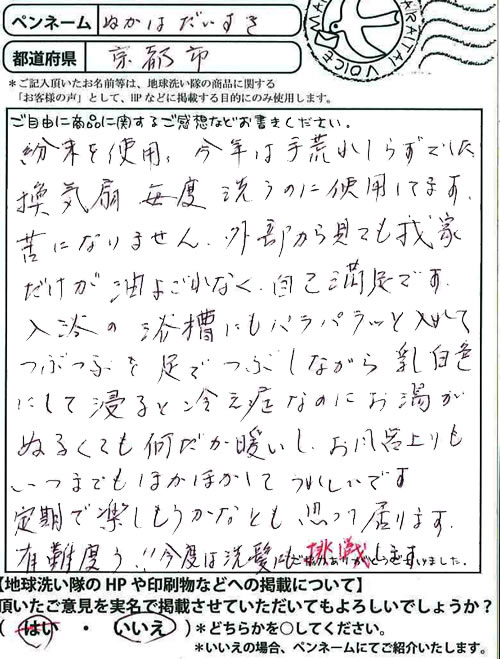 ペンネーム ぬかはだいすき
都道府県 京都市
*ご記入頂いたお名前等は、地球洗い隊の商品に関する
「お客様の声」として、HPなどに掲載する目的にのみ使用します。
ARAITAI VOICE
ご自由に商品に関するご感想などお書きください。
粉末を使用、今年は手荒れしらずでした
換気扇毎度洗うのに使用してます.
苦になりません.外部から見ても我家
だけが油よごれなく.自己満足です.
入浴の浴槽にもパラパラッと入れて
つぶつぶを足でつぶしながら乳白色
にして浸ると冷え症なのにお湯が
ぬるくても何だか暖いし.お風呂上りも
いつまでもほかほかしてうれしいです
定期で楽しもうかなとも思って居ります.
有難度う!!今度は洗髪にも挑戦します
【地球洗い隊のHPや印刷物などへの掲載について】
頂いたご意見を実名で掲載させていただいてもよろしいでしょうか?
( はい ・ いいえ )*どちらかを○してください。
*いいえの場合、ペンネームにてご紹介いたします。